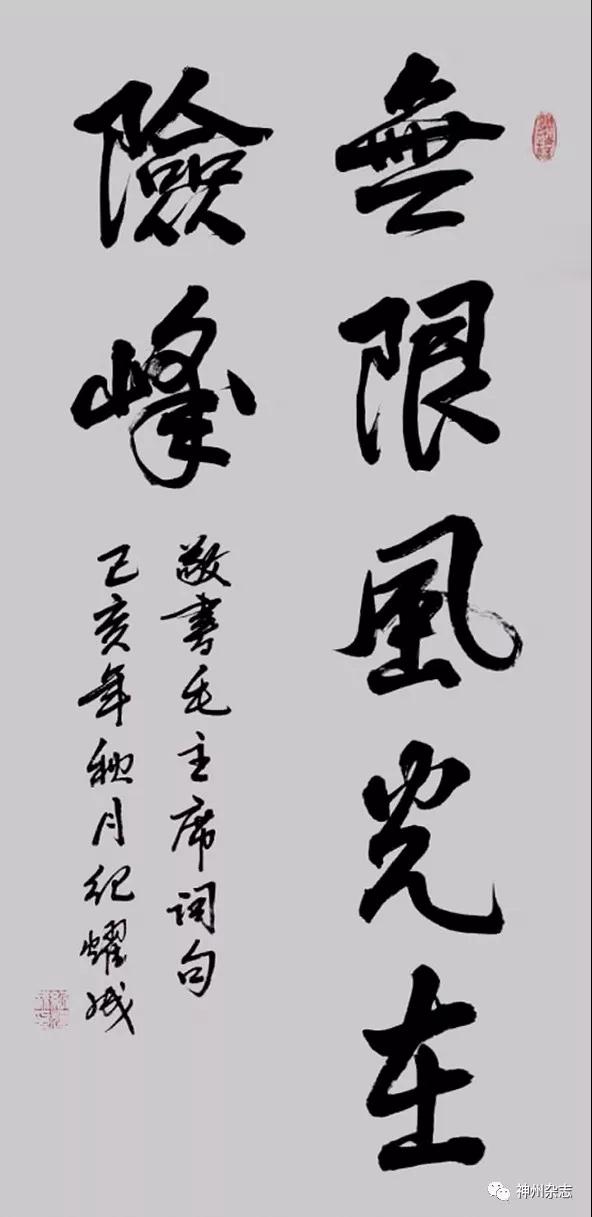 無限風光在
險峰
敬書毛主席词句
己亥年秋月纪耀
神州杂志